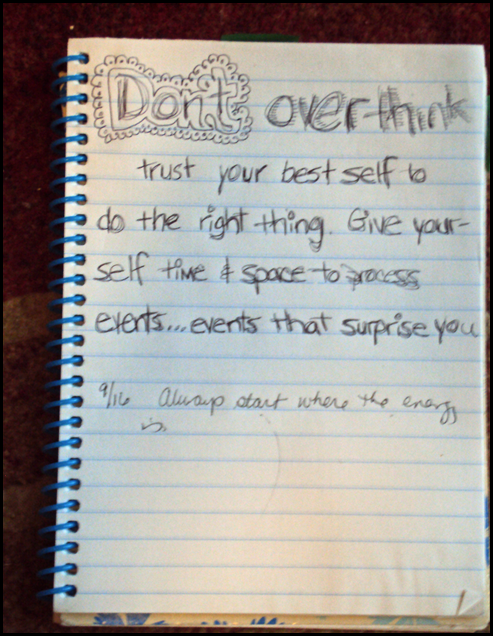 Don't over-think
trust your best self to
do the right thing. Give your-
self time & space to process
events... events that surprise you
9/16 Always start where the energy
is.